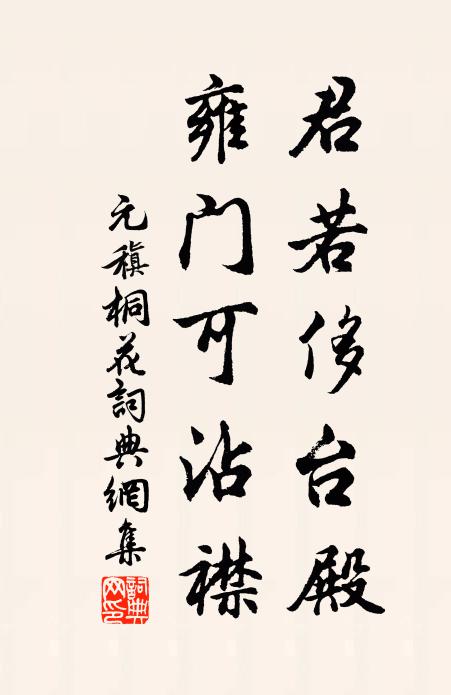 君若侈台殿
雍门可沾襟
元稹桐花詞典網集
詞典网印